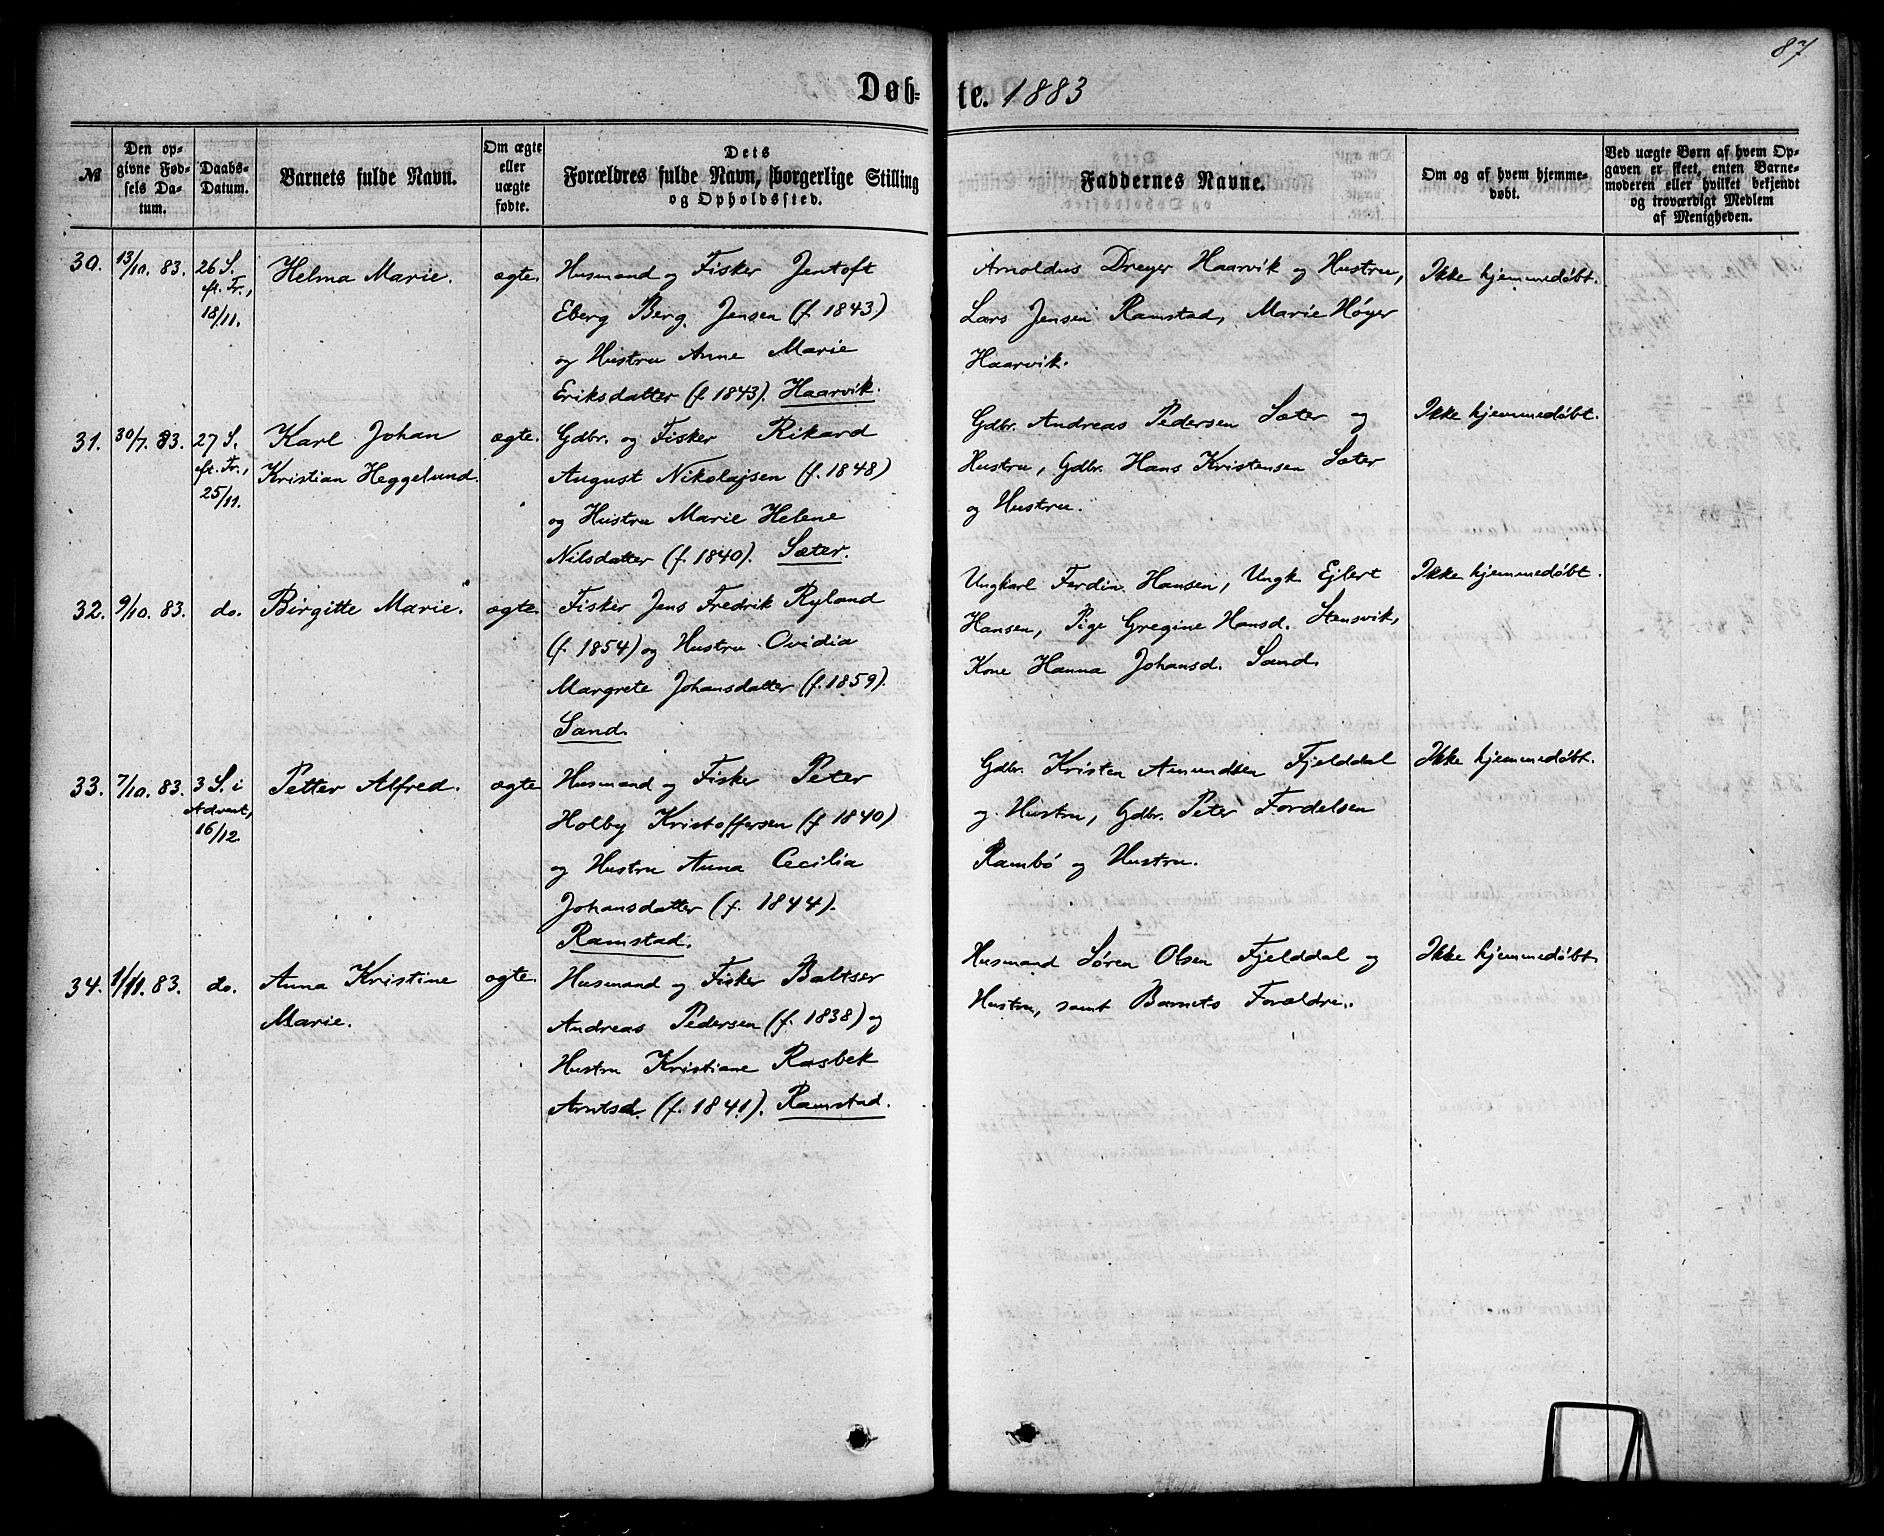 87
Døb- te. 1883
№
Den op-
givne Fød-
sels Da-
tum.
Daabs-
Datum.
Barnets fulde Navn.
Om ægte
eller
uægte
fødte.
Dets
Forældres fulde Navn, borgerlige Stilling
og Opholdssted.
Faddernes Navne.
Om og af hvem hjemme-
døbt.
Ved uægte Børn af hvem Op-
gaven er skeet, enten Barne-
moderen eller hvilket bekjendt
og troværdigt Medlem
af Menigheden.
30.
13/10. 83.
26 S.
eft. Tr.,
18/11.
Helma Marie.
ægte.
Husmand og Fisker Jentoft
Eberg Berg Jensen (f. 1843)
og Hustru Anne Marie
Eriksdatter (f. 1843). Haarvik.
Arnoldus Dreyer Haarvik og Hustru,
Lars Jensen Ramstad, Marie Høyer
Haarvik.
Ikke hjemmedøbt.
31.
30/7. 83.
27 S.
eft. Tr.,
25/11.
Karl Johan
Kristian Heggelund.
ægte.
Gdbr. og Fisker Rikard
August Nikolajsen (f. 1848)
og Hustru Marie Helene
Nilsdatter (f. 1840). Sæter.
Gdbr. Andreas Pedersen Sæter og
Hustru, Gdbr. Hans Kristensen Sæter
og Hustru.
Ikke hjemmedøbt.
32.
9/10. 83.
do.
Birgitte Marie.
ægte.
Fisker Jens Fredrik Ryland
(f. 1854) og Hustru Ovidia
Margrete Johansdatter (f. 1859).
Sand.
Ungkarl Ferdin. Hansen, Ungk. Ejlert
Hansen, Pige Gregine Hansd. Stensvik,
Kone Hanna Johansd. Sand.
Ikke hjemmedøbt.
33.
7/10. 83.
3 S. i
Advent,
16/12.
Petter Alfred.
ægte.
Husmand og Fisker Peter
Holby Kristoffersen (f. 1840)
og Hustru Anna Cecilia
Johansdatter (f. 1844).
Ramstad.
Gdbr. Kristen Amundsen Fjelddal
og Hustru, Gdbr. Peter Fordelsen
Rambø og Hustru.
Ikke hjemmedøbt.
34.
1/11. 83.
do.
Anna Kristine
Marie.
ægte.
Husmand og Fisker Baltser
Andreas Pedersen (f. 1838) og
Hustru Kristiane Rasbek
Arntsd. (f. 1841). Ramstad.
Husmand Søren Olsen Fjelddal og
Hustru, samt Barnets Forældre.
Ikke hjemmedøbt.